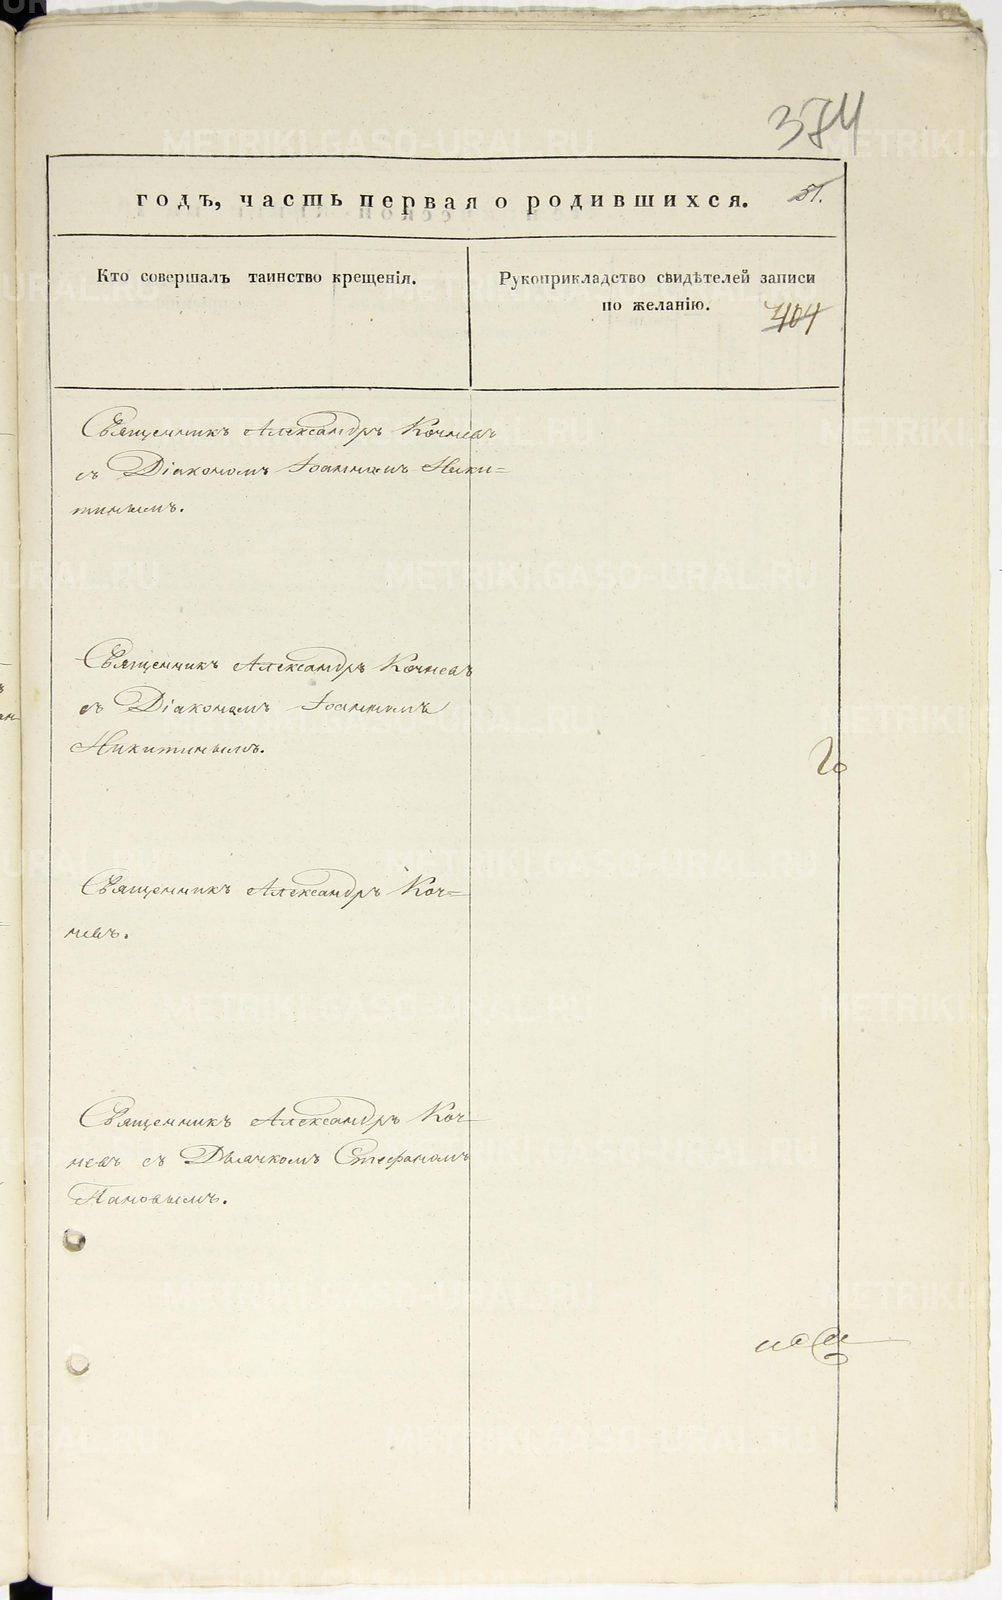 374
годъ, часть первая о родившихся. 51.
Кто совершалъ таинство крещенія.
Рукоприкладство свидѣтелей записи
по желанію.
404
Священникъ Александръ Кочневъ
съ Діакономъ Іоанномъ Ники=
тинымъ.
Священникъ Александръ Кочневъ
съ Діакономъ Іоанномъ
Никитинымъ.
Священникъ Александръ Коч=
невъ.
Священникъ Александръ Коч-
невъ съ Дьячкомъ Стефаномъ
Пановымъ.
METRIKI.GASO-URAL.RU